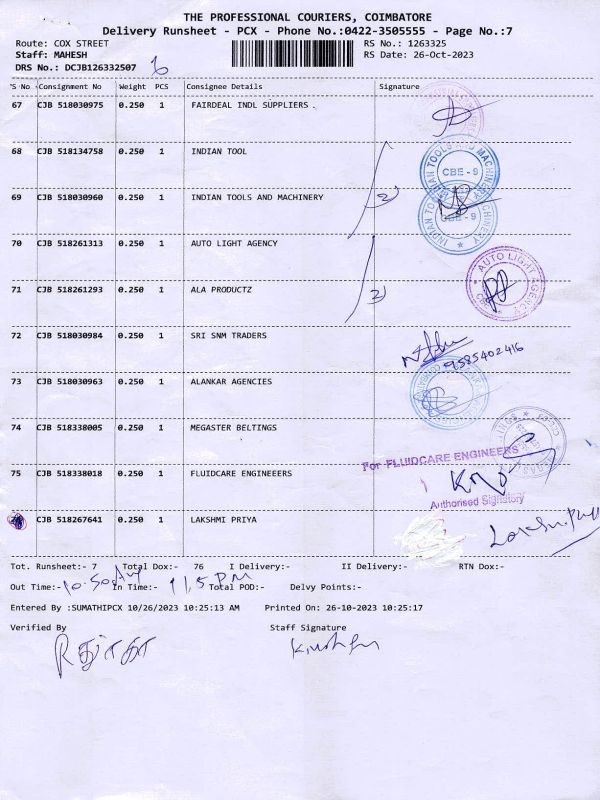 THE PROFESSIONAL COURIERS, COIMBATORE
Delivery Runsheet - PCX - Phone No.:0422-3505555 - Page No.:7
Route: COX STREET RS No.: 1263325
Staff: MAHESH RS Date: 26-Oct-2023
DRS No.: DCJB126332507
S No Consignment No Weight PCS Consignee Details Signature
67 CJB 518030975 0.250 1 FAIRDEAL INDL SUPPLIERS .
68 CJB 518134758 0.250 1 INDIAN TOOL
INDIAN TOOLS AND MACHINERY
CBE - 9
69 CJB 518030960 0.250 1 INDIAN TOOLS AND MACHINERY 2
INDIAN TOOLS AND MACHINERY
CBE - 9
70 CJB 518261313 0.250 1 AUTO LIGHT AGENCY
AUTO LIGHT AGENCY
71 CJB 518261293 0.250 1 ALA PRODUCTZ 2
72 CJB 518030984 0.250 1 SRI SNM TRADERS
9585402416
73 CJB 518030963 0.250 1 ALANKAR AGENCIES
74 CJB 518338005 0.250 1 MEGASTER BELTINGS
For FLUIDCARE ENGINEERS
75 CJB 518338018 0.250 1 FLUIDCARE ENGINEEERS
Authorised Signatory
CJB 518267641 0.250 1 LAKSHMI PRIYA
Tot. Runsheet:- 7 Total Dox:- 76 I Delivery:- II Delivery:- RTN Dox:-
Out Time:- 10.50AM In Time:- 11.5 PM Total POD:- Delvy Points:-
Entered By :SUMATHIPCX 10/26/2023 10:25:13 AM Printed On: 26-10-2023 10:25:17
Verified By Staff Signature